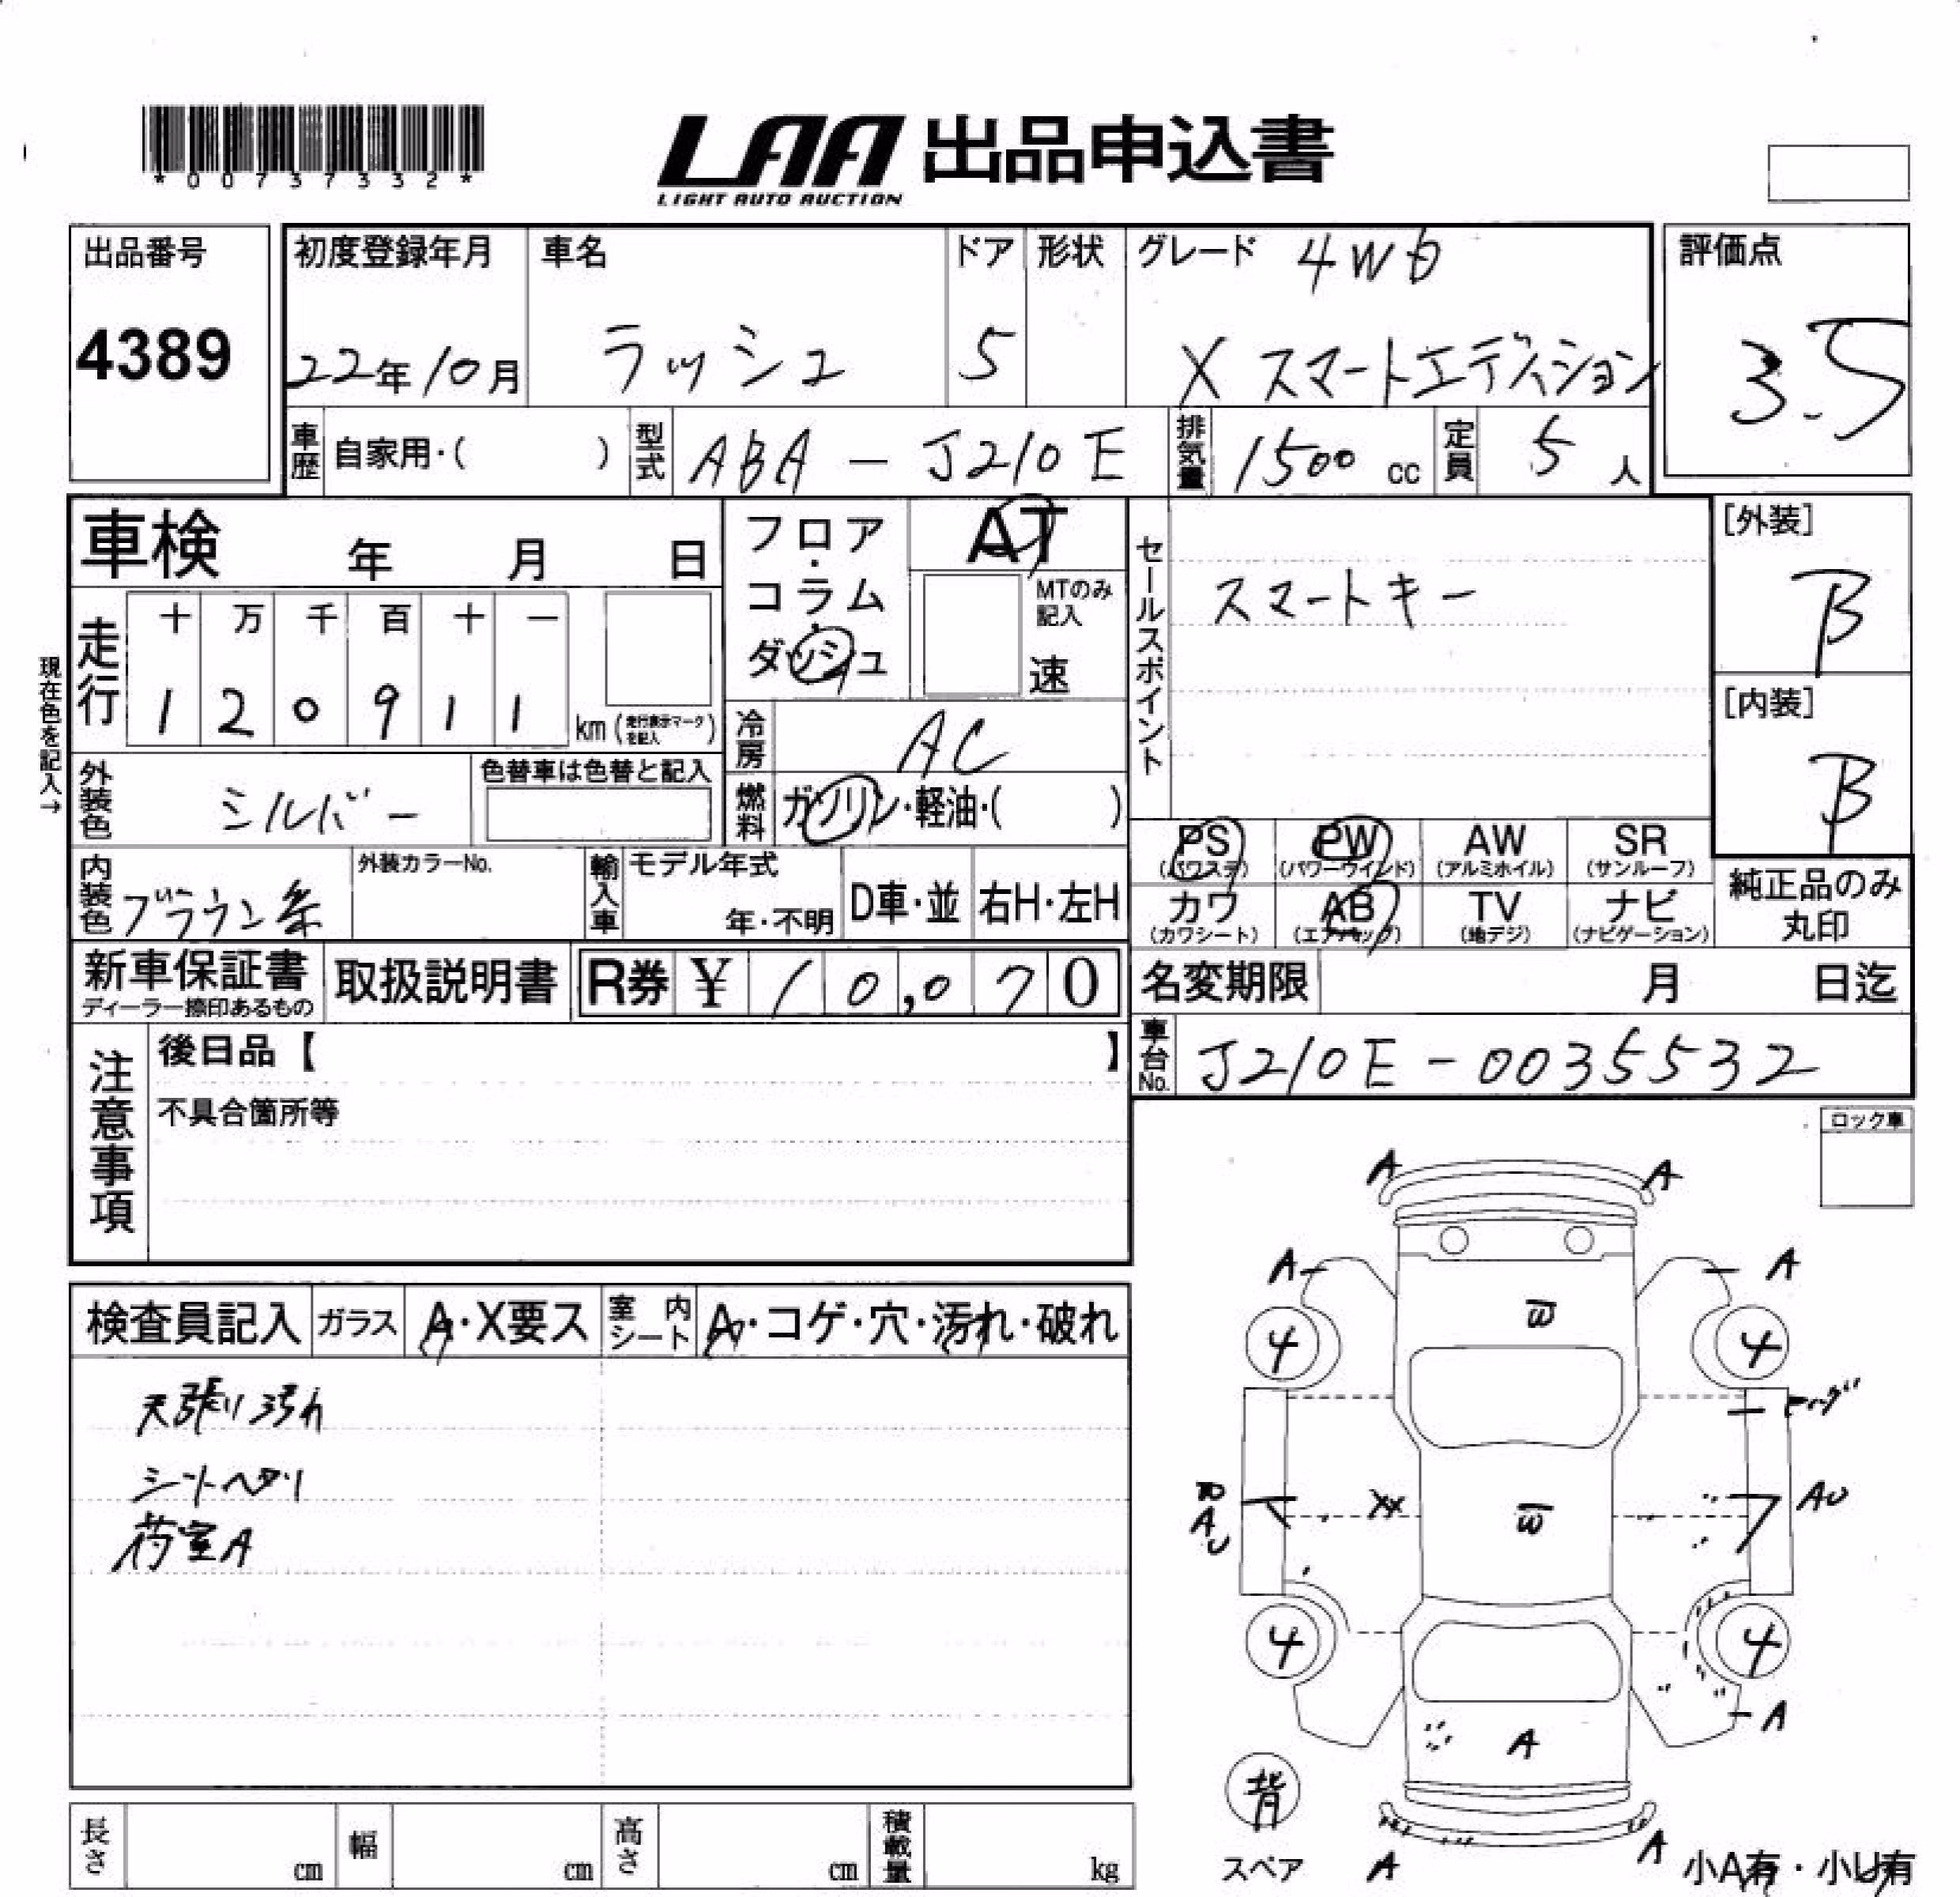 *00737332*
LAA 出品申込書
LIGHT AUTO AUCTION
出品番号
4389
初度登録年月
22年10月
車名
ラッシュ
ドア
5
形状
グレード 4WD
X スマートエディション
評価点
3.5
車歴 自家用・( )
型式 ABA-J210E
排気量 1500 cc
定員 5 人
車検 年 月 日
フロア・コラム・ダッシュ
AT
MTのみ記入
速
セールスポイント
スマートキー
[外装]
B
[内装]
B
現在色を記入→
走行
十 万 千 百 十 一
1 2 0 9 1 1 km (走行表示マークを記入)
冷房 AC
外装色 シルバー
色替車は色替と記入
燃料 ガソリン・軽油・( )
PS (パワステ)
PW (パワーウインド)
AW (アルミホイル)
SR (サンルーフ)
内装色 ブラウン系
外装カラーNo.
輸入車
モデル年式
年・不明
D車・並
右H・左H
カワ (カワシート)
AB (エアバック)
TV (地デジ)
ナビ (ナビゲーション)
純正品のみ丸印
新車保証書
ディーラー捺印あるもの
取扱説明書
R券 ¥ 10,070
名変期限 月 日迄
車台No. J210E-0035532
注意事項
後日品【 】
不具合箇所等
ロック車
検査員記入
ガラス A・X要ス
室内シート A・コゲ・穴・汚れ・破れ
天張り汚れ
シートヘタリ
荷室A
A A
A A
W
4 4
XX
W
AU
AU
4 4
A
A
背
スペア
A A
小A有・小U有
長さ cm
幅 cm
高さ cm
積載量 kg